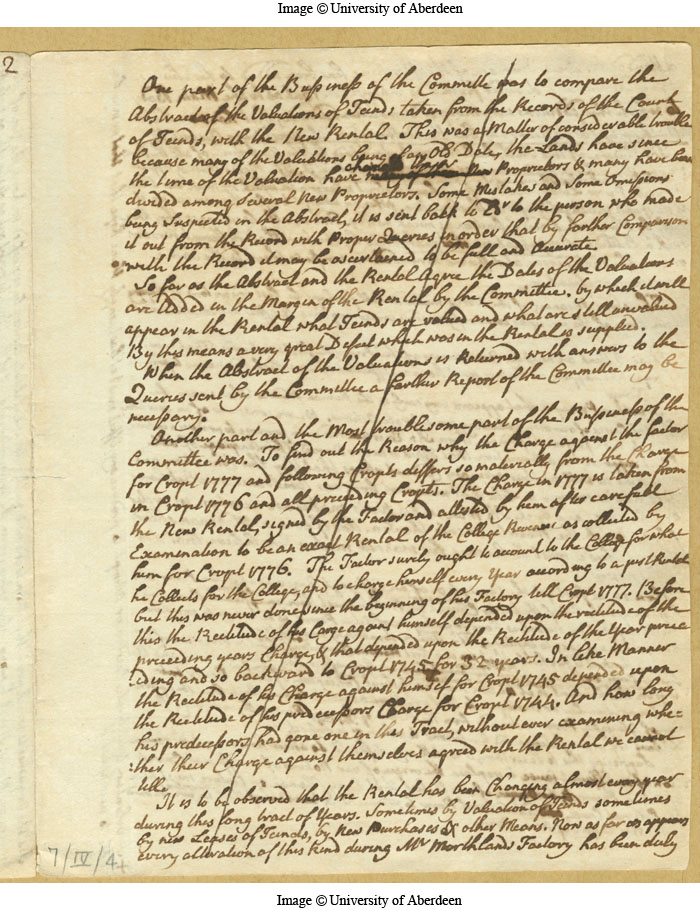 Image © University of Aberdeen
2
One part of the Bussiness of the Committe was to compare the
Abstract of the Valuations of Teinds taken from the Records of the Court
of Teinds, with the New Rental. This was a Matter of considerable trouble
because many of the Valuations being of an Old Date, the Lands have since
the time of the Valuation have New Proprietors & many have been
divided among several New Proprietors. Some Mistakes and Some Omissions
being Suspected in the Abstract, it is sent back to to the person who made
it out from the Record with Proper Queries in order that by farther Comparison
with the Record it may be ascertained to be full and Accurate
So far as the Abstract and the Rental agree the Dates of the Valuations
are Added in the Margin of the Rental by the Committee. by which it will
appear in the Rental what Teinds are valued and what are still unvalued
By this means a very great Defect which was in the Rental is supplied.
When the Abstract of the Valuations is Returned with answers to the
Queries sent by the Committee a farther Report of the Committee may be
necessary.
Another part and the Most troublesome part of the Bussiness of the
Committee was. To find out the Reason why the Charge against the factor
for Cropt 1777 and following Cropts differs so materially from the Charge
in Cropt 1776 and all preceeding Cropts. The Charge in 1777 is taken from
the New Rental, signed by the Factor and attested by him after carefull
Examination to be an exact Rental of the College Revenue as collected by
him for Cropt 1776. The Factor surely ought to account to the College for what
he Collects for the College, and to charge himself every Year according to a just Rental
but this was never done since the beginning of his Factory till Cropt 1777. Before
this the Rectitude of his Carge against himself depended upon the rectitude of the
preceeding years Charge, & that depended upon the Rectitude of the Year precee
:ding and so backward to Cropt 1745 for 32 years. In like Manner
the Rectitude of his Charge against himself for Cropt 1745 depended upon
the Rectitude of his predecessors Charge for Cropt 1744. And how long
his predecessors had gone one in this Tract, without ever examining whe=
:ther their Charge against themselves agreed with the Rental we cannot
tell.
It is to be observed that the Rental has been Changing almost every year
during this long tract of Years. Sometimes by Valuation of Teinds sometimes
by new Leases of Teinds, by New Purchases & other Means. Now as far as appears
every alteration of this kind during Mr Morthlands Factory has been duly
7/IV/4
Image © University of Aberdeen